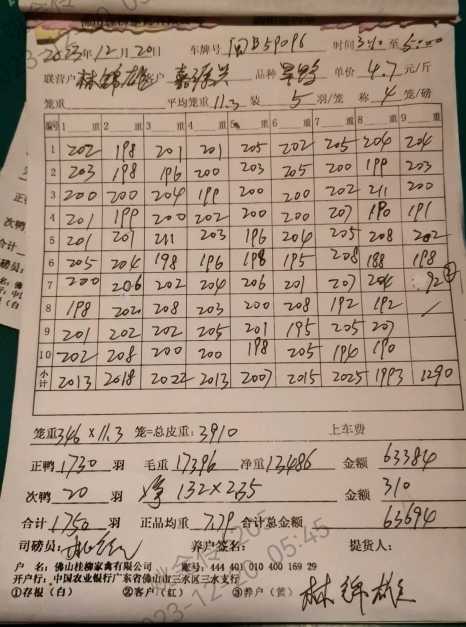 2023年12月20日 车牌号 闽B59096 时间3:40至5:00
联营户 林锦雄 客户 品种 单价 4.7 元/斤
笼重 平均笼重 11.3 装 5 羽/笼 称 4 笼/磅
编号 1 重 2 重 3 重 4 重 5 重 6 重 7 重 8 重 9 重
1 202 198 201 201 205 202 205 204 204
2 203 198 196 200 203 205 200 199 203
3 200 200 204 199 200 200 202 211 200
4 201 199 200 202 200 200 207 190 191
5 201 207 211 203 196 204 205 208 202
6 205 204 198 196 198 195 208 188 198
7 200 206 202 204 206 201 207 204 92
8 198 202 208 203 200 208 192 192
9 201 202 202 205 201 195 205 207
10 202 208 200 200 198 205 194 190
小计 2013 2018 2022 2013 2007 2015 2025 1993 1290
笼重346×11.3 笼=总皮重:3910 上车费
正鸭 1730 羽 毛重 17396 净重 13486 金额 63384
次鸭 20 羽 净 132×235 金额 310
合计 1750 羽 正品均重 7.79 合计总金额 63694
司磅员: 养户签名: 提货人:
户 名:佛山桂柳家禽有限公司 账号:444 401 010 400 169 29
开户行:中国农业银行广东省佛山市三水区三水支行
①存根(白) ②客户(红) ③养户(黄) 林锦雄